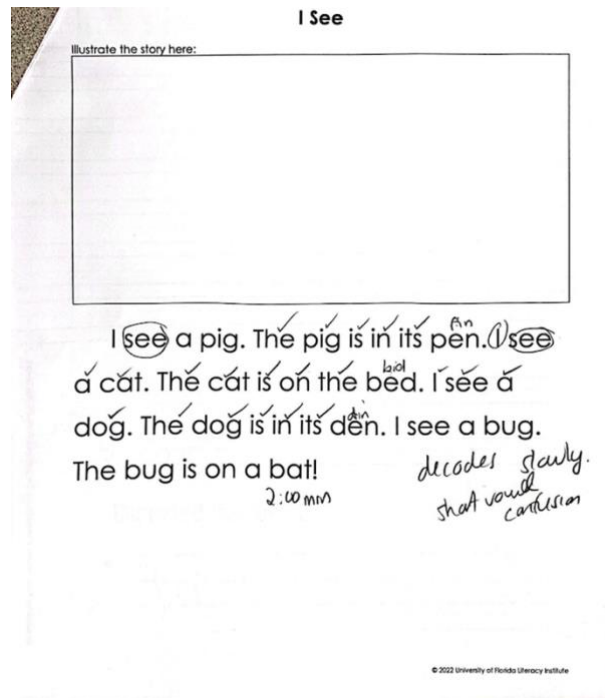 I See
Illustrate the story here:
I see a pig. The pig is in its pen. I see
a cat. The cat is on the bed. I see a
dog. The dog is in its den. I see a bug.
The bug is on a bat!
decodes slowly.
2:00 min
short vowel
confusion
© 2022 University of Florida Literacy Institute